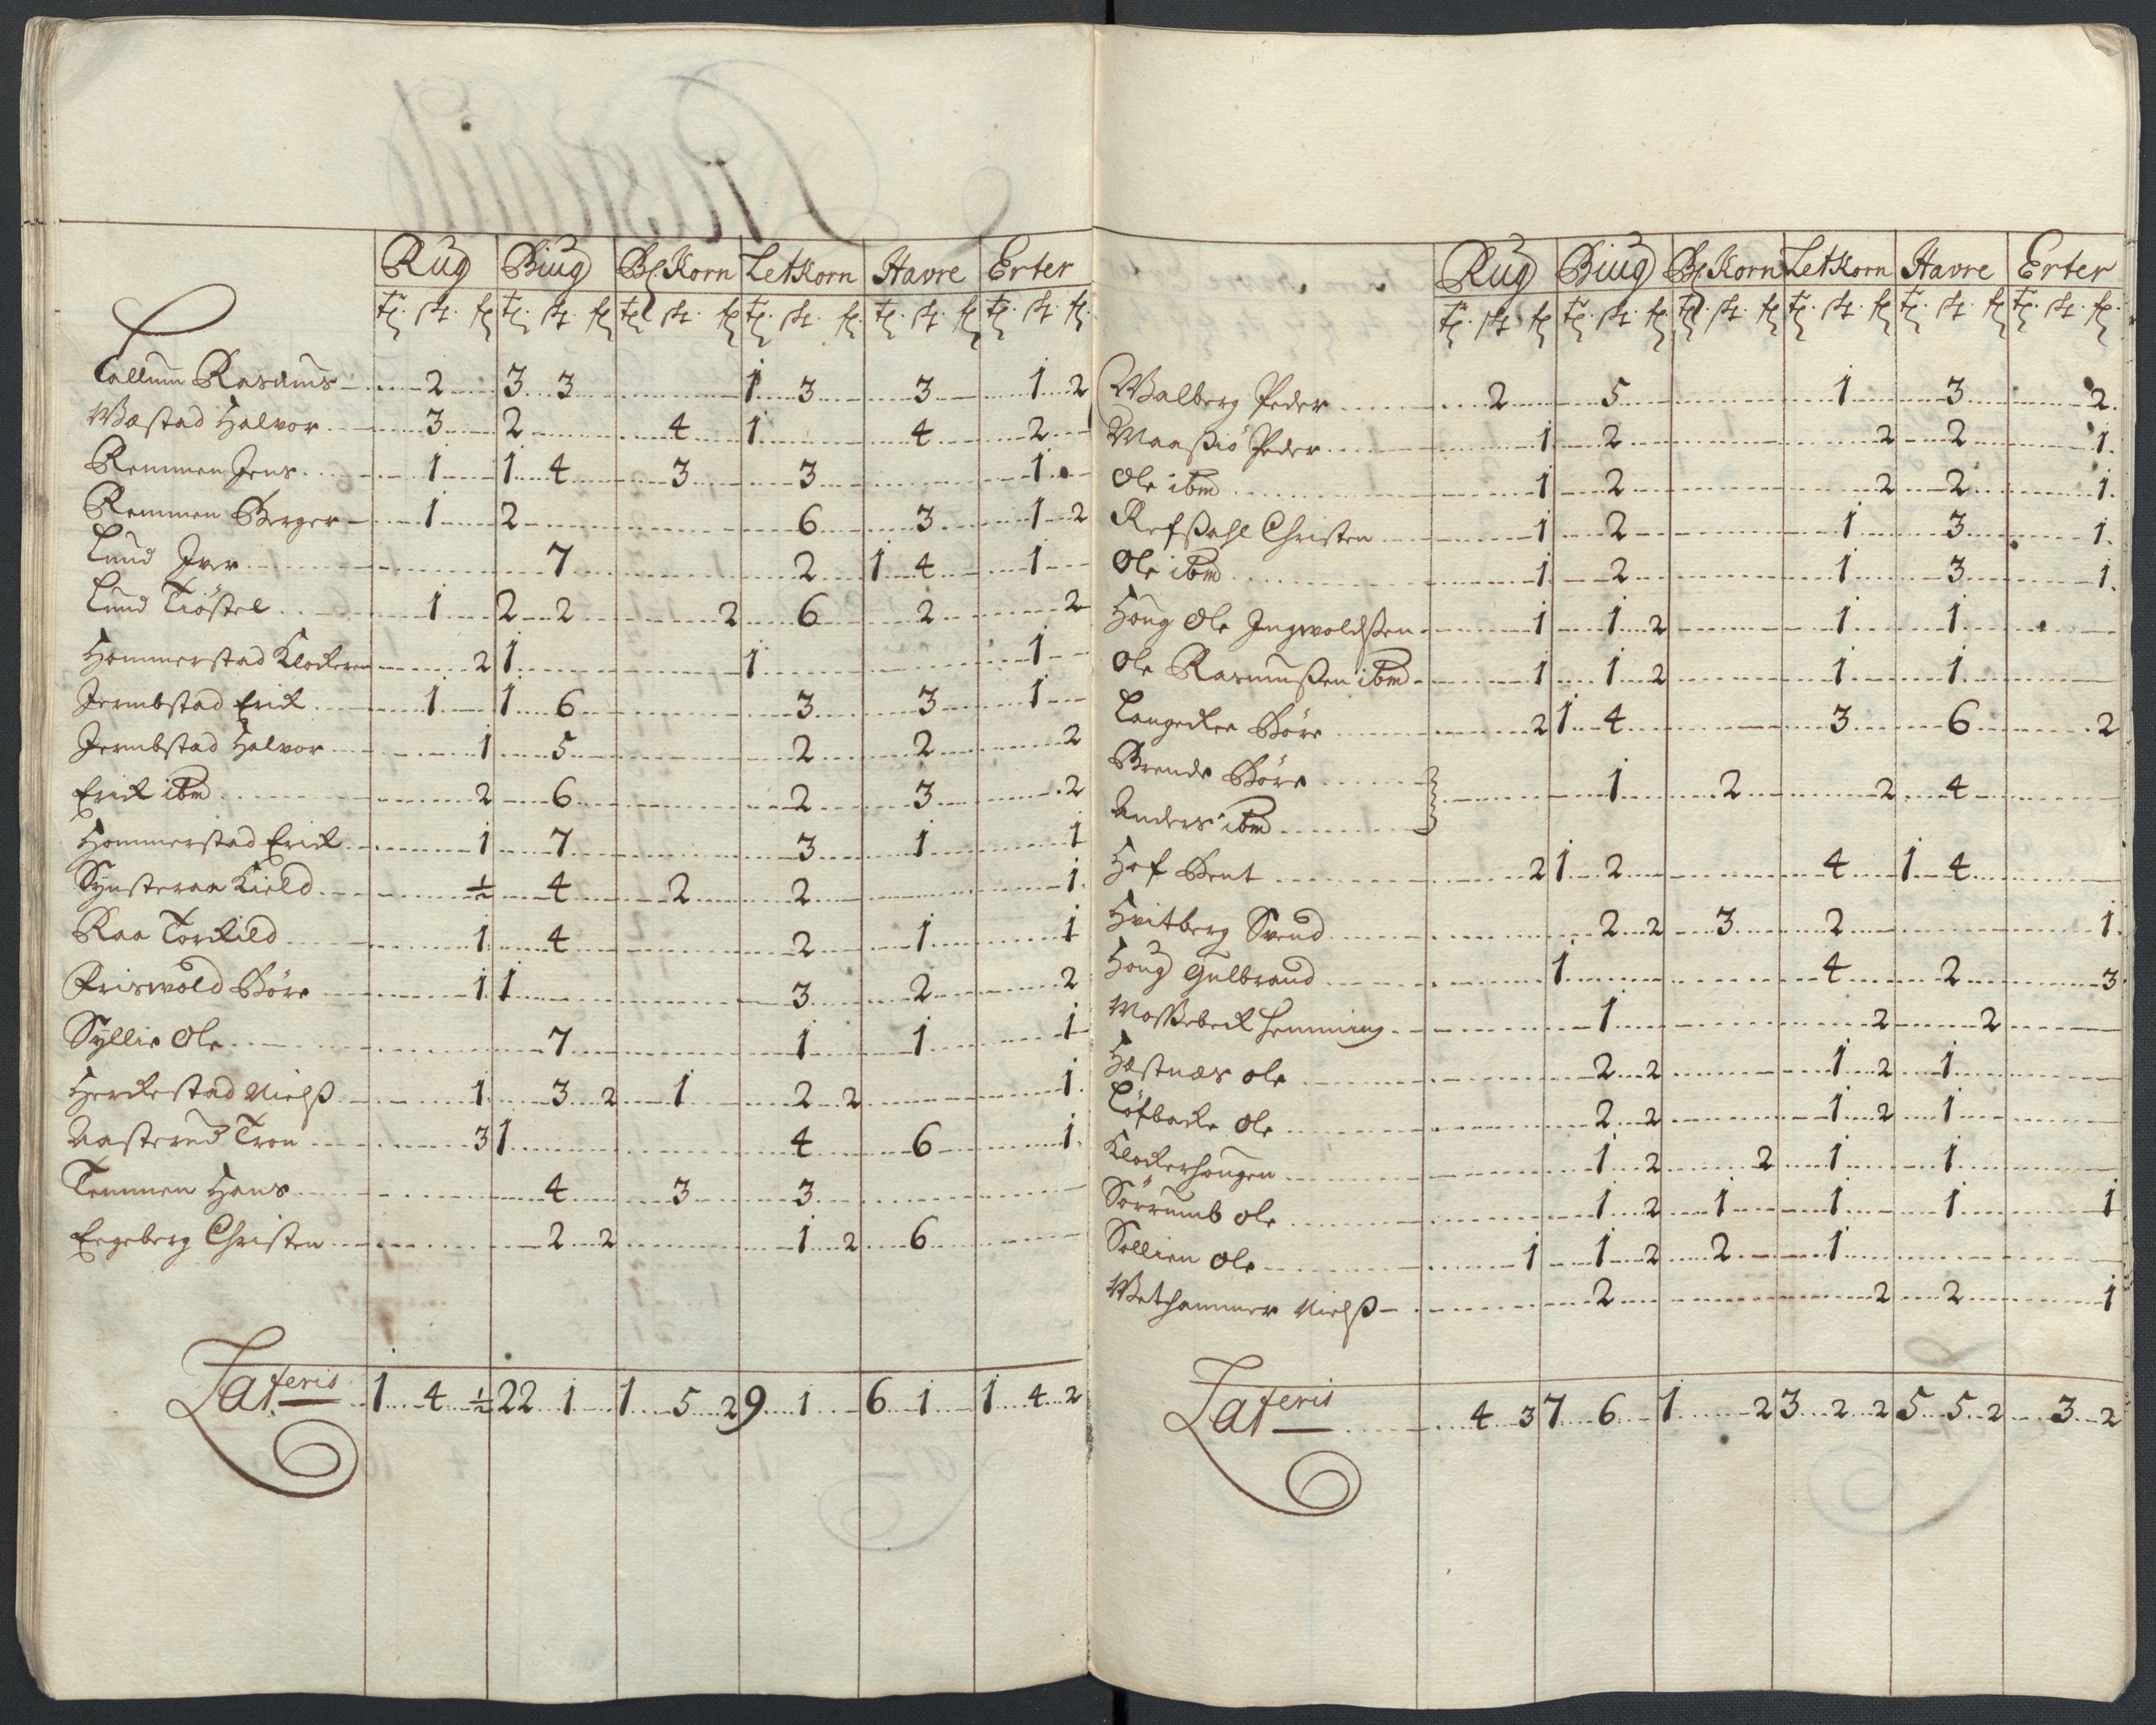 Rug Biug Bl Korn Letkorn Havre Erter
Tallum Rasmus 2 3 3 1 3 3 1 2
Wæstad Halvor 3 2 4 1 4 2
Remmen Jens 1 1 4 3 3 1
Remmen Berger 1 2 6 3 1 2
Lund Iver 7 2 1 4 1
Lund Tiøstel 1 2 2 2 6 2 2
Hommerstad Klockeren 2 1 1 1
Jermbstad Erick 1 1 6 3 3 1
Jermbstad Halvor 1 5 2 2 2
Erick ibm 2 6 2 3 2
Hommerstad Erick 1 7 3 1 1
Synsteraa Kield ½ 4 2 2 1
Raa Torkild 1 4 2 1 1
Friswold Børe 1 1 3 2 2
Syllie Ole 7 1 1 1
Herckestad Nielß 1 3 2 1 2 2 1
Aasterud Tron 3 1 4 6 1
Temmen Hans 4 3 3
Eegeberg Christen 2 2 1 2 6
Lateris 1 4 ½ 22 1 1 5 2 9 1 6 1 1 4 2
Rug Biug Bl Korn Letkorn Havre Erter
Walberg Peder 2 5 1 3 2
Maaßiø Peder 1 2 2 2 1
Ole ibm 1 2 2 2 1
Refßahl Christen 1 2 1 3 1
Ole ibm 1 2 1 3 1
Houg Ole Ingwoldßen 1 1 2 1 1
Ole Rasmußen ibm 1 1 2 1 1
Langecker Børe 2 1 4 3 6 2
Brende Børe 1 2 2 4
Anders ibm
Hof Bent 2 1 2 4 1 4
Hvitberg Svend 2 2 3 2 1
Houg Gulbrand 1 4 2 3
Moßebeck Hemming 1 2 2
Hæstnæs Ole 2 2 1 2 1
Løfbacke Ole 2 2 1 2 1
Klockerhougen 1 2 2 1 1
Sørrumb Ole 1 2 1 1 1 1
Sollien Ole 1 1 2 2 1
Wethammer Nielß 2 2 2 1
Lateris 4 3 7 6 1 2 3 2 2 5 5 2 3 2